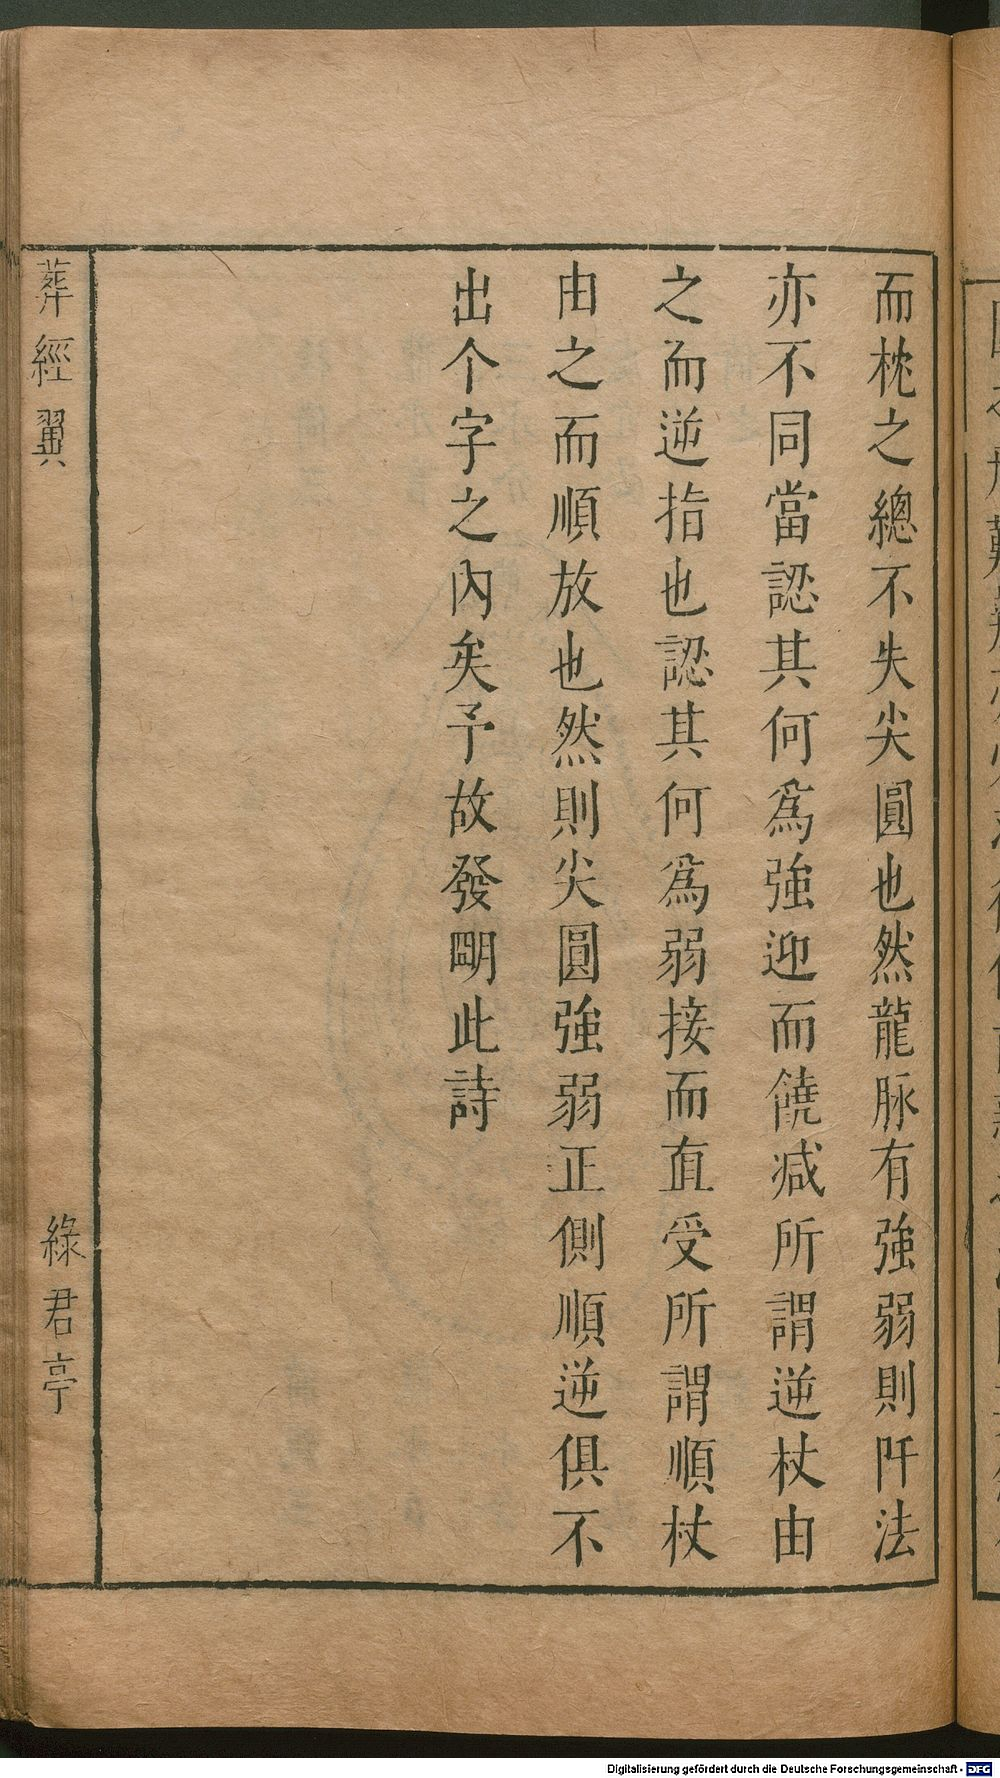 而枕之總不失尖圓也然龍脉有強弱則阡法
亦不同當認其何爲強迎而饒减所謂逆杖由
之而逆指也認其何爲弱接而直受所謂順杖
由之而順放也然則尖圓強弱正側順逆俱不
出个字之內矣予故發明此詩
葬經翼
綠君亭
Digitalisierung gefördert durch die Deutsche Forschungsgemeinschaft - DFG